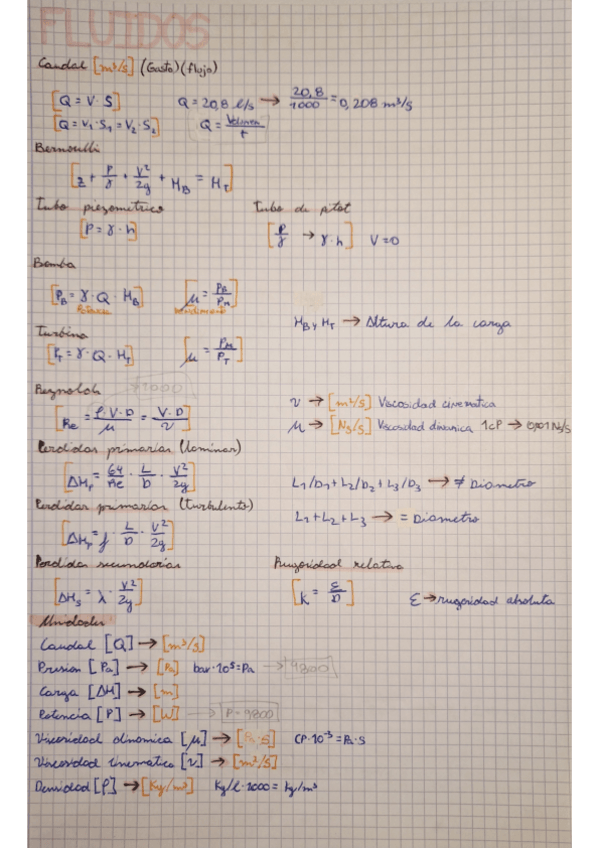 FLUIDOS
Caudal [m³/s] (Gasto) (flujo)
[Q = V · S] Q = 20,8 l/s → 20,8/1000 = 0,208 m³/s
[Q = V₁ · S₁ = V₂ · S₂] Q = Volumen/t
Bernoulli
[z + P/γ + V²/2g + H_B = H_T]
Tubo piezometrico Tubo de pitot
[P = γ · h] [P/γ → γ · h] V = 0
Bomba
[P_B = γ · Q · H_B] [μ = P_B/P_m]
Potencia rendimiento
H_B y H_T → Altura de la carga
Turbina
[P_T = γ · Q · H_T] [μ = P_m/P_T]
Reynolds >4000
[Re = ρ · V · D/μ = V · D/ν]
ν → [m²/s] Viscosidad cinematica
μ → [N s/s] Viscosidad dinamica 1cP → 0,001 N s/s
Perdidas primarias (laminar)
[ΔH_P = 64/Re · L/D · V²/2g] L₁/D₁ + L₂/D₂ + L₃/D₃ → ≠ Diametro
Perdidas primarias (turbulento)
[ΔH_P = f · L/D · V²/2g] L₁ + L₂ + L₃ → = Diametro
Perdidas secundarias Rugosidad relativa
[ΔH_S = λ · V²/2g] [K = ε/D] ε → rugosidad absoluta
Unidades
Caudal [Q] → [m³/s]
Presion [Pa] → [Pa] bar · 10⁵ = Pa → [9800]
Carga [ΔH] → [m]
Potencia [P] → [W] → [P · 9800]
Viscosidad dinamica [μ] → [Pa · s] CP · 10⁻³ = Pa · s
Viscosidad cinematica [ν] → [m²/s]
Densidad [ρ] → [Kg/m³] Kg/l · 1000 = kg/m³